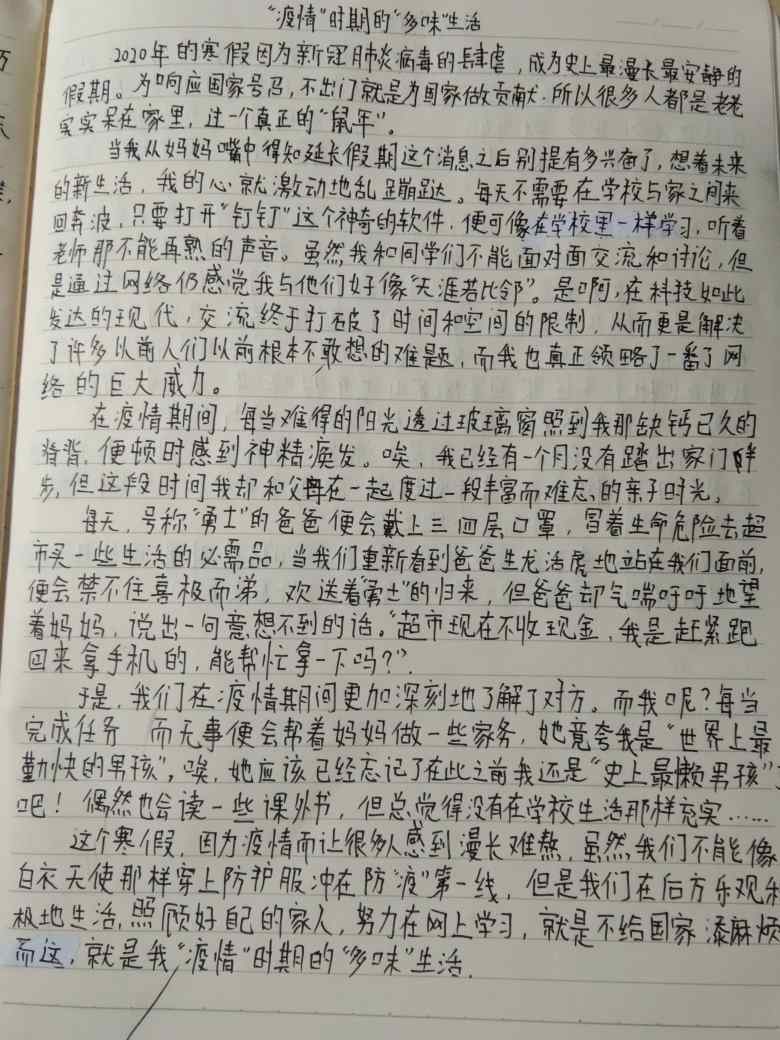 “疫情”时期的“多味”生活
2020年的寒假因为新冠肺炎病毒的肆虐，成为史上最漫长最安静的
假期。为响应国家号召，不出门就是为国家做贡献.所以很多人都是老老
实实呆在家里，过一个真正的“鼠年”。
当我从妈妈嘴中得知延长假期这个消息之后别提有多兴奋了，想着未来
的新生活，我的心就激动地乱蹦跶。每天不需要在学校与家之间来
回奔波，只要打开“钉钉”这个神奇的软件，便可像在学校里一样学习，听着
老师那不能再熟的声音。虽然我和同学们不能面对面交流和讨论，但
是通过网络仍感觉我与他们好像“天涯若比邻”。是啊，在科技如此
发达的现代，交流终于打破了时间和空间的限制，从而更是解决
了许多以前人们以前根本不敢想的难题，而我也真正领略了一番了网
络的巨大威力。
在疫情期间，每当难得的阳光透过玻璃窗照到我那缺钙已久的
脊背，便顿时感到神精焕发。唉，我已经有一个月没有踏出家门半
步，但这段时间我却和父母在一起度过一段丰富而难忘的亲子时光。
每天，号称“勇士”的爸爸便会戴上三四层口罩，冒着生命危险去超
市买一些生活的必需品，当我们重新看到爸爸生龙活虎地站在我们面前，
便会禁不住喜极而涕，欢送着“勇士”的归来，但爸爸却气喘吁吁地望
着妈妈，说出一句意想不到的话。“超市现在不收现金，我是赶紧跑
回来拿手机的，能帮忙拿一下吗？”
于是，我们在疫情期间更加深刻地了解了对方。而我呢？每当
完成任务 而无事便会帮着妈妈做一些家务，她竟夸我是“世界上最
勤快的男孩”。唉，她应该已经忘记了在此之前我还是“史上最懒男孩”了
吧！偶然也会读一些课外书，但总觉得没有在学校生活那样充实……
这个寒假，因为疫情而让很多人感到漫长难熬，虽然我们不能像
白衣天使那样穿上防护服冲在防“疫”第一线，但是我们在后方乐观积
极地生活，照顾好自己的家人，努力在网上学习，就是不给国家添麻烦
而这，就是我“疫情”时期的“多味”生活.